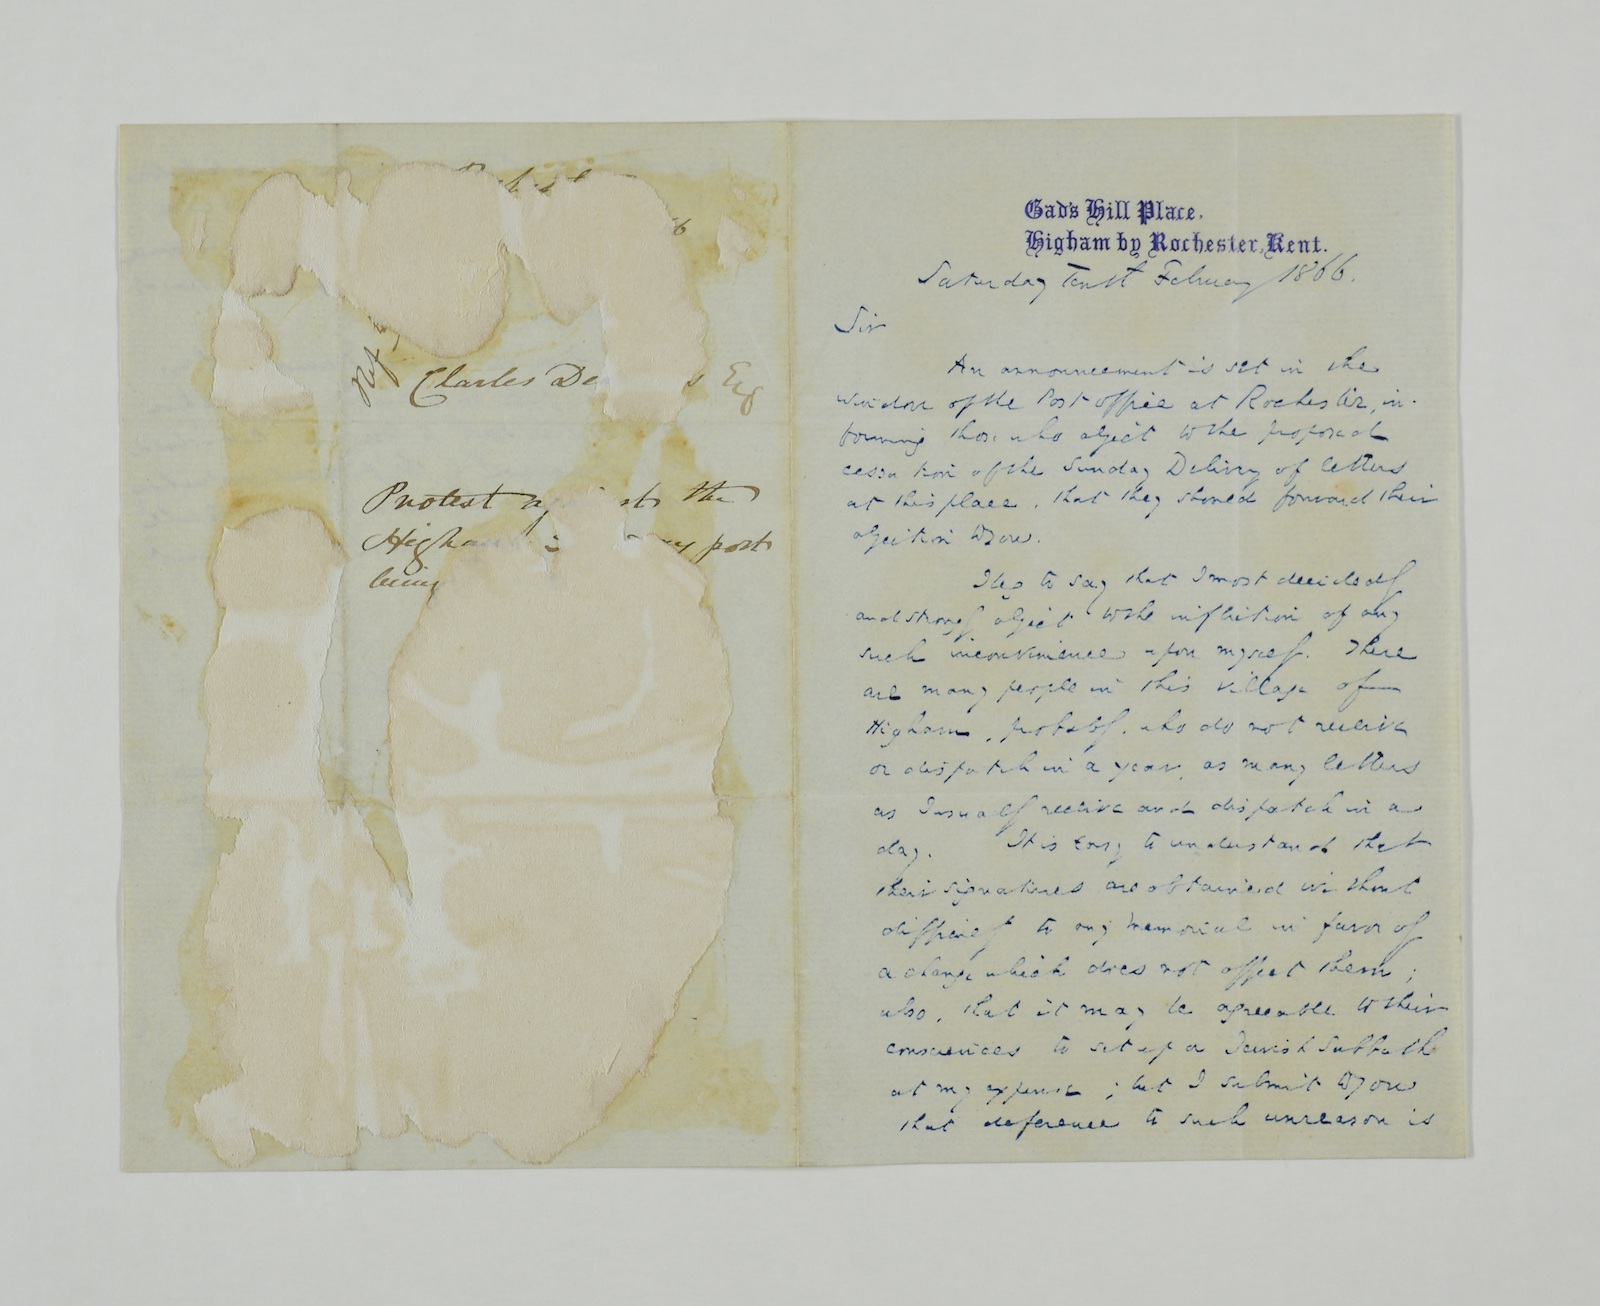 Charles De s Esq
Protest ag sts the
Higha post
being
Gad's Hill Place,
Higham by Rochester, Kent.
Saturday Tenth February 1866.
Sir
An announcement is set in the
window of the Post office at Rochester, in-
forming those who object to the proposed
cessation of the Sunday Delivery of letters
at this place, that they should forward their
objection to you.
I beg to say that I most decidedly
and strongly object to the infliction of any
such inconvenience upon myself. There
are many people in this village of
Higham, probably, who do not receive
or dispatch in a year, as many letters
as I usually receive and dispatch in a
day. It is easy to understand that
their signatures are obtained without
difficulty to any Memorial in favor of
a change which does not affect them;
also, that it may be agreeable to their
consciences to set up a Jewish Sabbath
at my expense; but I submit to you
that deference to such unreason is